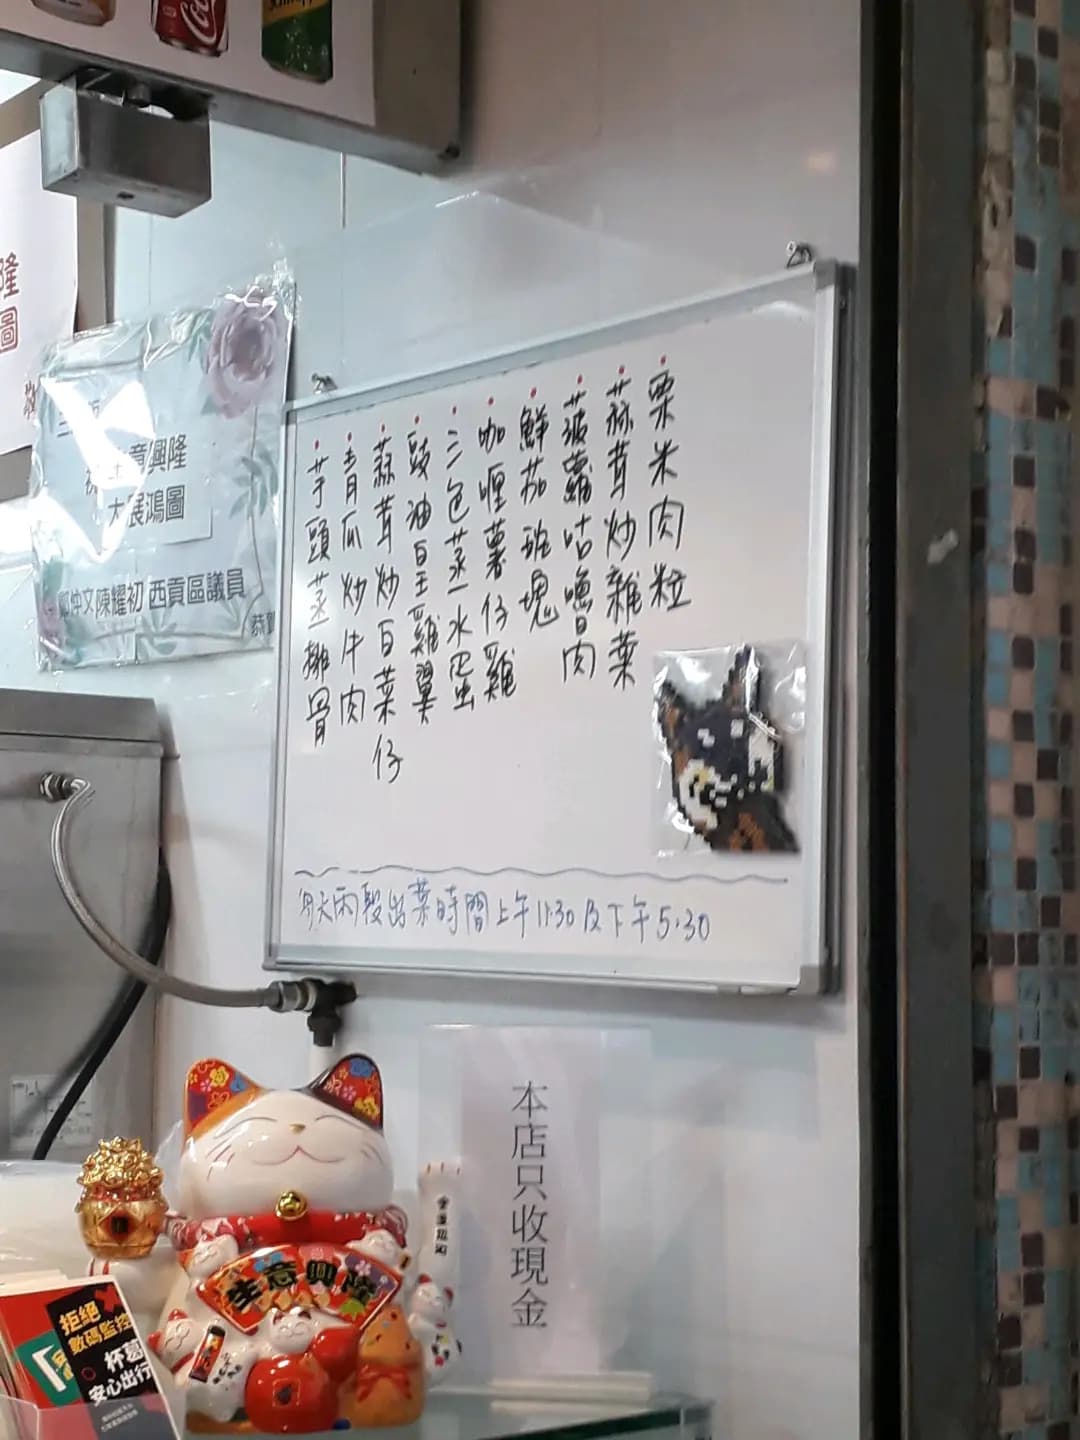 粟米肉粒
蒜茸炒雜菜
菠蘿咕嚕肉
鮮茄斑塊
咖喱薯仔雞
三色蒸水蛋
豉油皇雞翼
蒜茸炒白菜仔
青瓜炒牛肉
芋頭蒸排骨
今天兩段出菜時間上午11:30及下午5:30
隆
圖
意興隆
大展鴻圖
仲文陳耀初 西貢區議員
恭賀
本店只收現金
生意興隆
拒絕
數碼監控
杯葛
安心出行